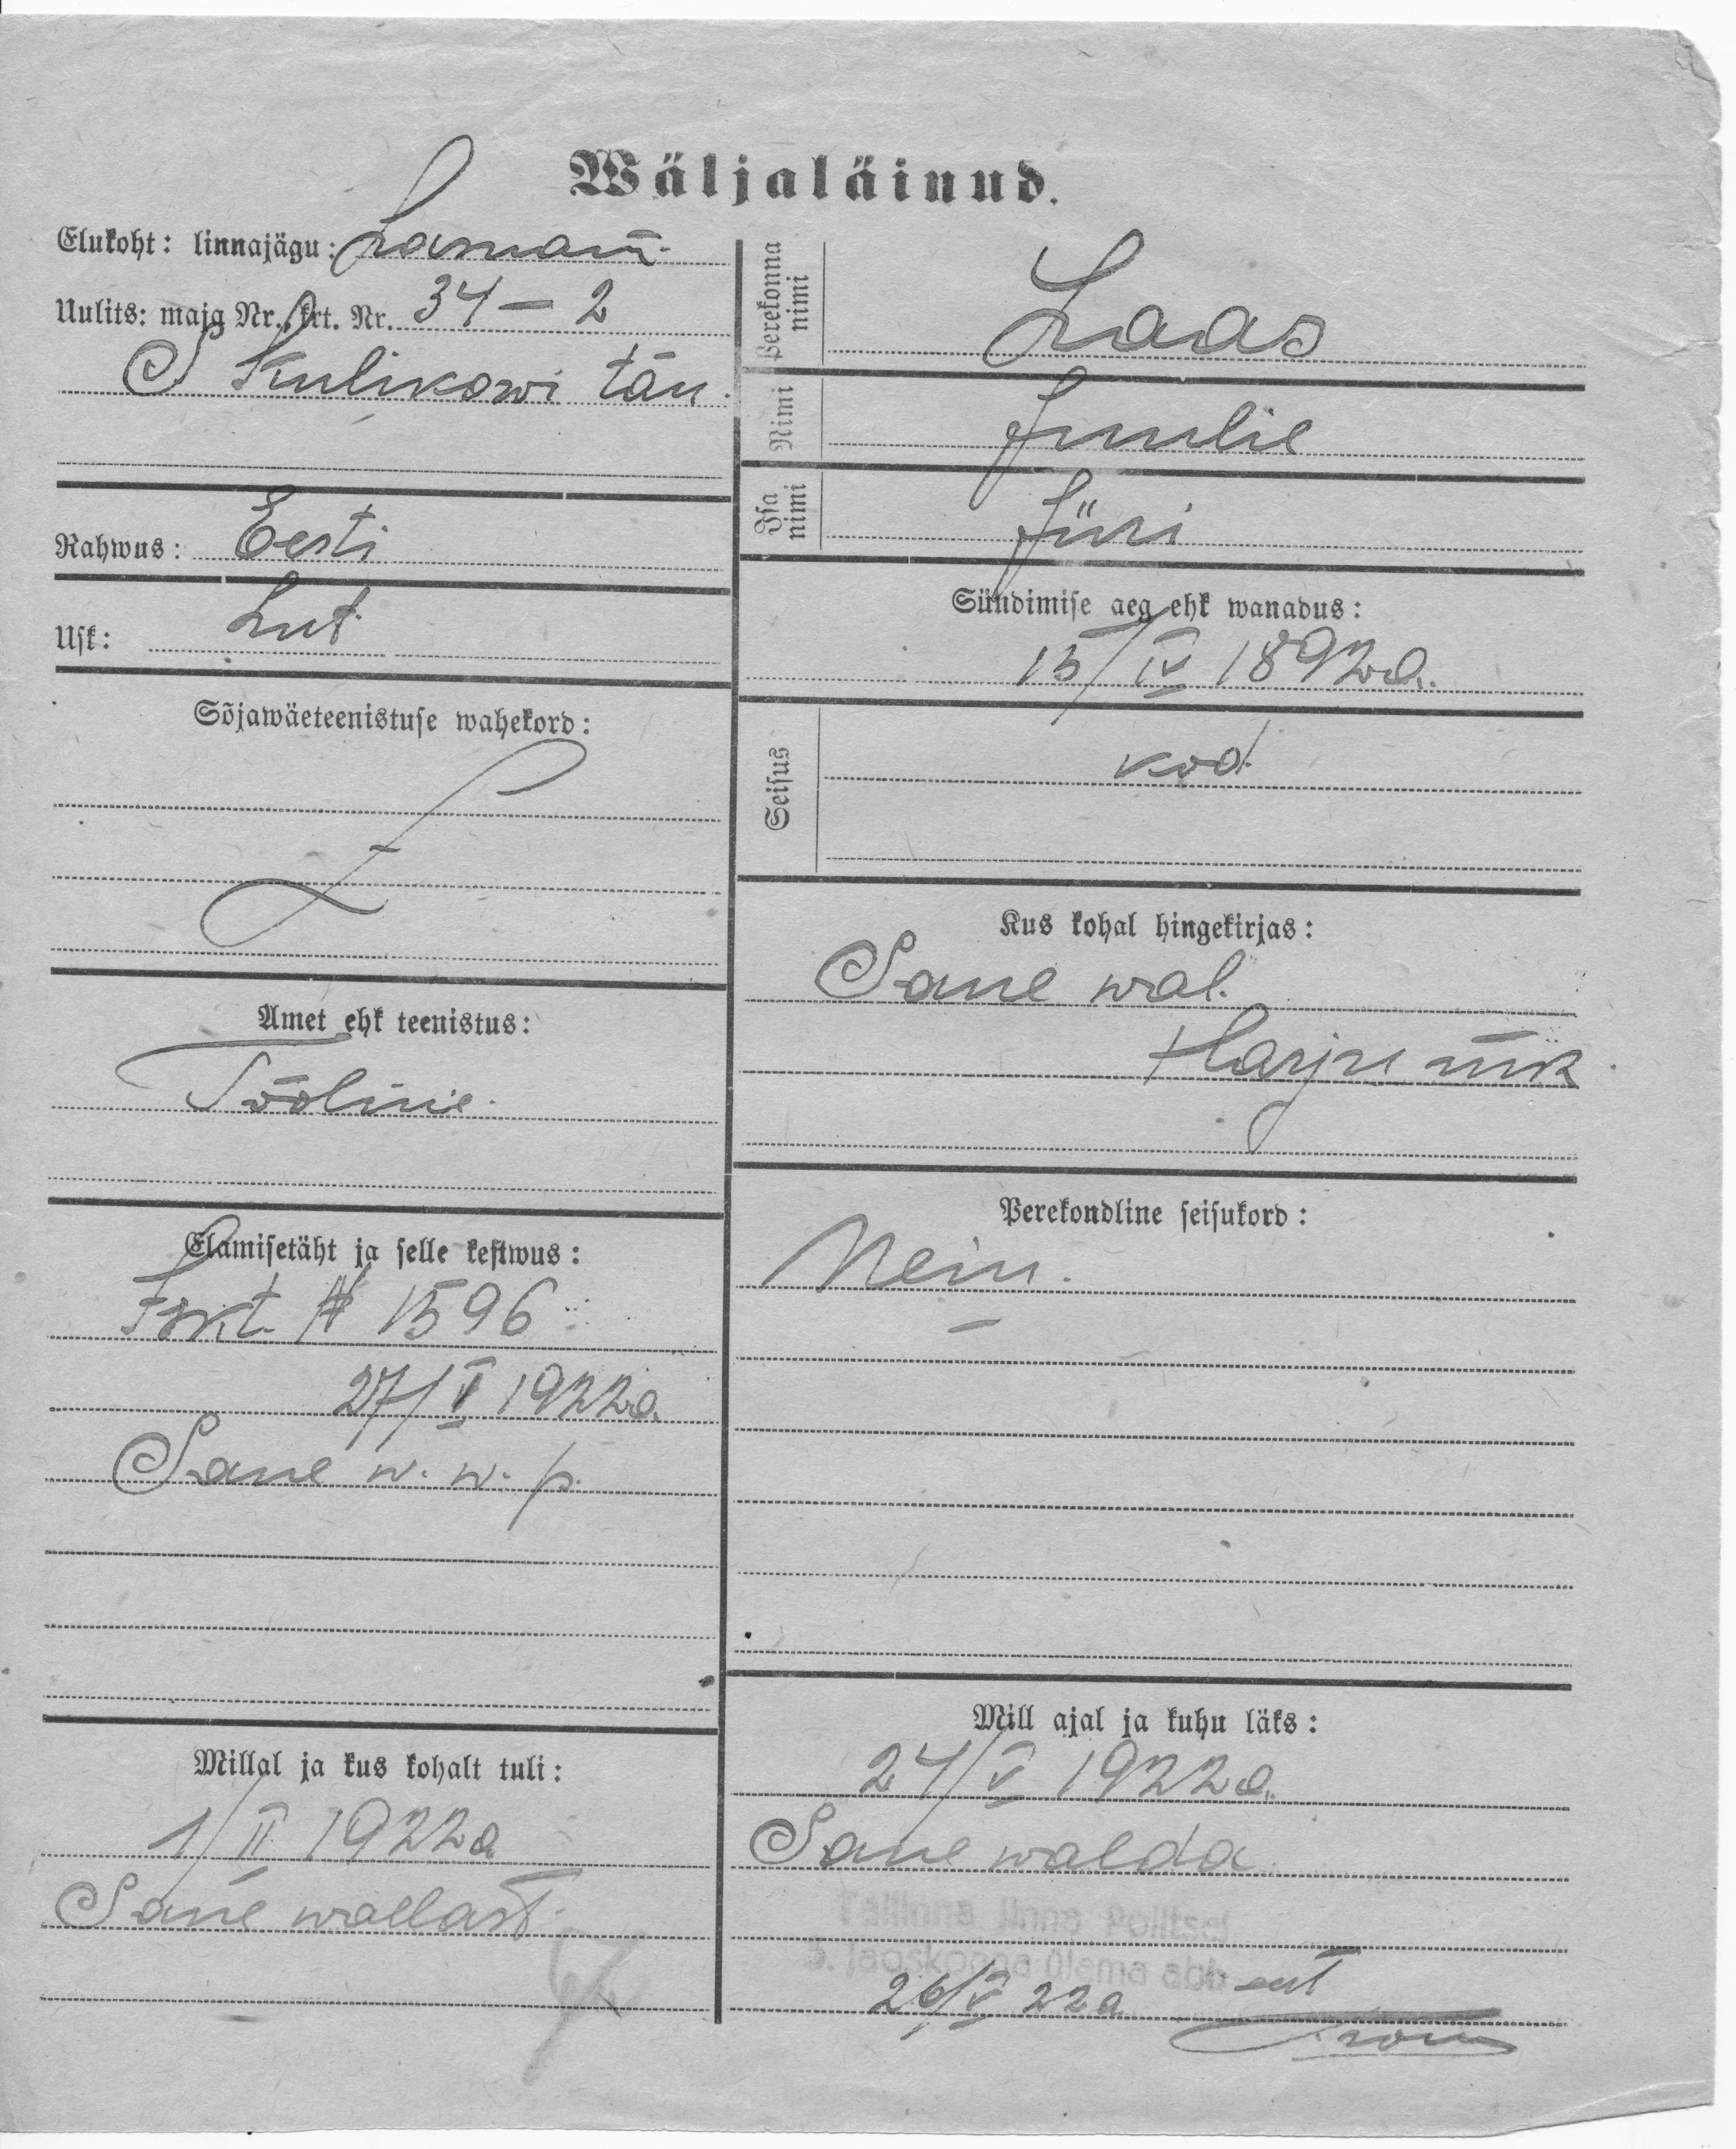 Wäljaläinud.
Elukoht: linnajägu: Lasnam.
Uulits: maja Nr., krt. Nr. 34 – 2
S Kulikowi tän.
Rahwus: Eesti
Usk: Lut.
Sõjawäeteenistuse wahekord:
Amet ehk teenistus:
Tööline.
Elamisetäht ja selle kestwus:
Isikt. № 1596
27/V 1922a.
Saue w. w. p.
Millal ja kus kohalt tuli:
1/II 1922a
Saue wallast.
Perekonna nimi
Laas
Nimi
Juulie
Isa nimi
Jüri
Sündimise aeg ehk wanadus:
15/IV 1892a.
Seisus
kod.
Kus kohal hingekirjas:
Saue wal.
Harju
Perekondline seisukord:
Nein.
Mill ajal ja kuhu läks:
24/V 1922a.
Saue walda.
Tallinna linna Politsei
jaoskonna ülema abi
26/V 22a